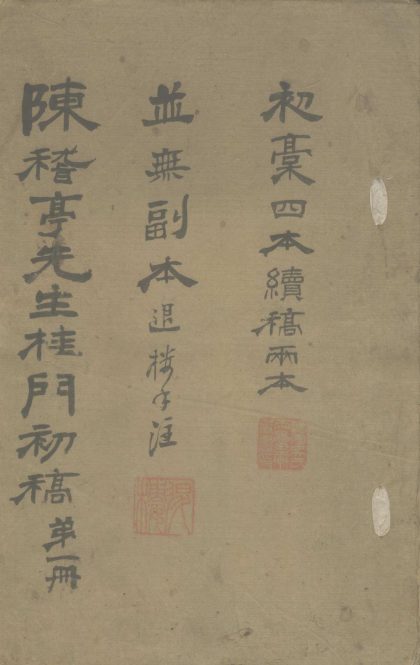 初稾四本續稿兩本
並無副本退樓手注
陳稽亭先生桂門初稿弟一冊